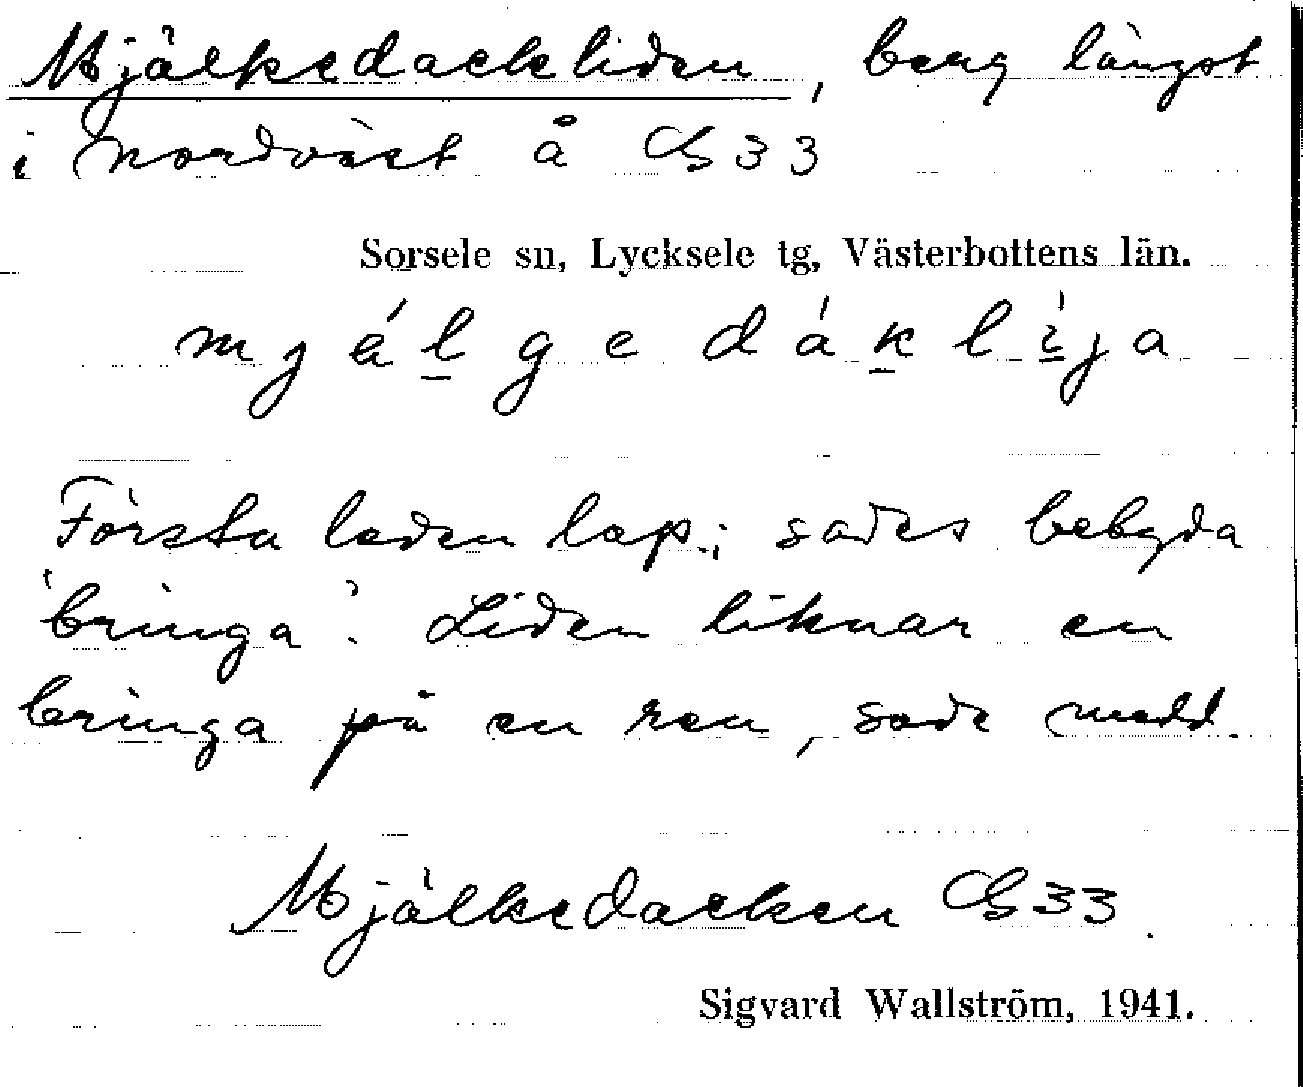 Mjälkedackliden, berg längst
i nordväst å GS 33
Sorsele sn, Lycksele tg, Västerbottens län.
mjálgedákl̀ija
Första leden lap.; sades betyda
'bringa'. Liden liknar en
bringa på en ren, sade medd.
Mjälkedacken GS 33.
Sigvard Wallström, 1941.